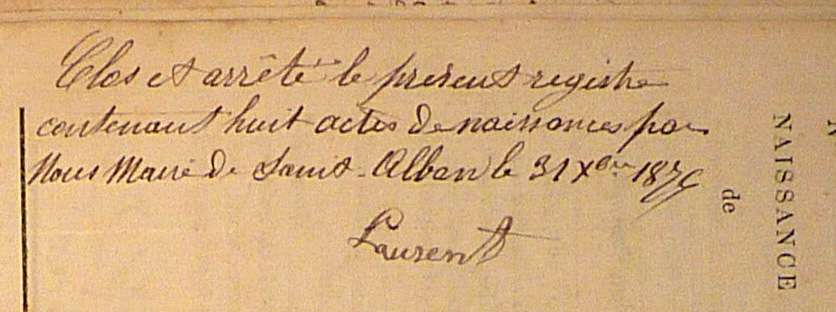 Clos et arrêté le présent registre
contenant huit actes de naissances par
Nous Maire de Saint-Alban le 31 Xbre
Laurent
de
NAISSANCE